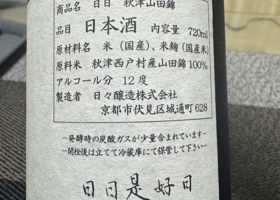 商品名　日日　秋津山田錦
品目　日本酒　内容量　720ml
原材料名　米（国産）、米麹（国産米）
原料米　秋津西戸村産山田錦100%
アルコール分　12度
製造者　日々醸造株式会社
京都市伏見区城通町628
−発酵時の炭酸ガスが少量含まれています−
−開栓後は立てて冷蔵庫にて保管して下さい−
日日是好日